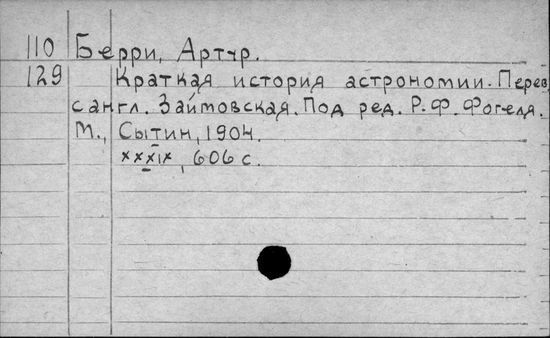 110 Берри, Артур.
129 Краткая история астрономии. Перев.
с англ. Займовская. Под ред. Р.Ф. Фогеля.
М., Сытин, 1904.
xxxix, 606 с.